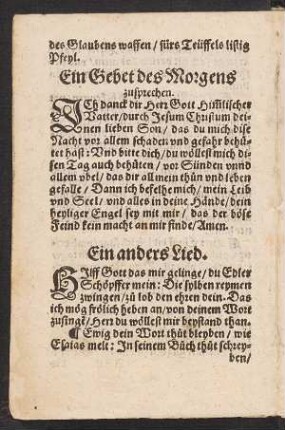 des Glaubens waffen / fürs Teüffels listig
Pfeyl.
Ein Gebet des Morgens
zusprechen.
ICh danck dir Herr Gott Him̃lischer
Vatter / durch Jesum Christum dei-
nen lieben Son / das du mich dise
Nacht vor allem schaden vnd gefahr behü-
tet hast: Vnd bitte dich / du wöllest mich di-
sen Tag auch behüten / vor Sünden vnnd
allem vbel / das dir all mein thün vnd leben
gefalle / Dann ich befelhe mich / mein Leib
vnd Seel / vnd alles in deine Hände / dein
heyliger Engel sey mit mir / das der böse
Feind kein macht an mir finde / Amen.
Ein anders Lied.
HIlff Gott das mir gelinge / du Edler
Schöpffer mein: Die sylben reymen
zwingen / zü lob den ehren dein. Das
ich mög frölich heben an / von deinem Wort
zusingẽ / Herr du wöllest mir beystand than.
Ewig dein Wort thüt bleyben / wie
Esaias melt: In seinem Büch thüt schrey-
ben /